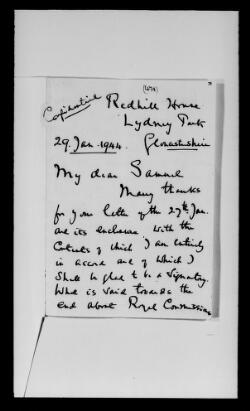 (474)
Confidential
Redhill House
Lydney Park
29. Jan. 1944. Gloucestershire
My dear Samuel
Many thanks
for your letter of the 27th Jan.
and its enclosure with the
contents of which I am entirely
in accord and of which I
shall be glad to be a signatory.
What is said towards the
end about Royal Commissions